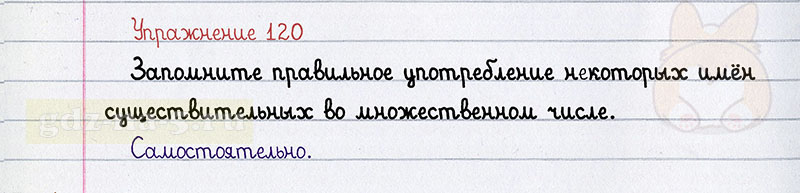 Упражнение 120
Запомните правильное употребление некоторых имён
существительных во множественном числе.
Самостоятельно.